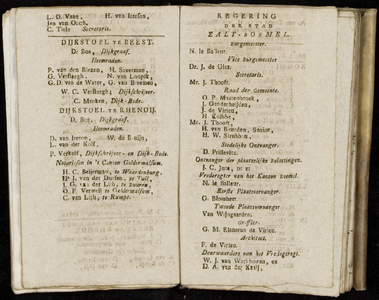 L. D. Vaan, H. van Iterson,
Jan van Ooch,
C. Tiele Secretaris.
DIJKSTOEL TE BEEST.
D: Bos, Dijkgraaf.
Heemraden.
P. van den Biezen, H. Soverman,
G. Verflugh, N. van Loopik,
G. D. van de Water, G. van Breenen,
W. C. Versteegh, Dijkschrijver.
C. Merken, Dijk-Bode.
DIJKSTOEL TE RHENOIJ.
D. Bos, Dijkgraaf.
Heemraden.
D. van Iteren, W. de Bruijn,
L. van der Kolf,
P. Verkolf, Dijkschrijver en Dijk-Bode.
Notarissen in 't Canton Geldermalsen.
H. C. Beijerman, te Waardenburg.
J. van der Dussen, te Tuil,
J. G. van der Lith, te Buuren,
O. F. Verweij te Geldermalsen,
C. van Lith, te Rumpt.
REGERING
DER STAD
ZALT-BOEMEL.
Burgemeester.
N. le Sulleur.
Vice Burgemeester
Dr. J. de Gier.
Secretaris.
Mr. J. Thooft.
Raad der Gemeente.
O. P.
J.
J. de Virieu,
H
Mr. J. Thooft,
H. van Heusden, Senior,
H. W.
Stedelijke Ontvanger.
D.
Ontvanger der plaatselijke belastingen.
J. C.
Vrederegter van het Kanton zoemel.
N. le Sulleur.
Eerste Plaatsvervanger.
G. Blombert
Tweede Plaatsvervanger
Van Wijngaarden.
Greffier.
G. M. Elsnerus de Virieu.
Architect.
F. de Virieu.
Deurwaarders van het Vredegeregt.
W. J. van
D. A. van der Kruij,